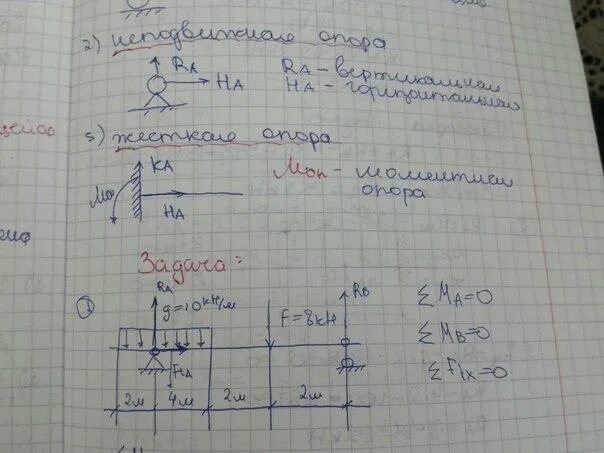 2) неподвижная опора
RA
HA
RA – вертикальная
HA – горизонтальная
3) жесткая опора
RA
Mоп
HA
Mоп – моментная
опора
Задача:
①
RA
g=10 кН/м
F=8кН
RB
ΣMA=0
ΣMB=0
ΣFix=0
2м 4м 2м 2м